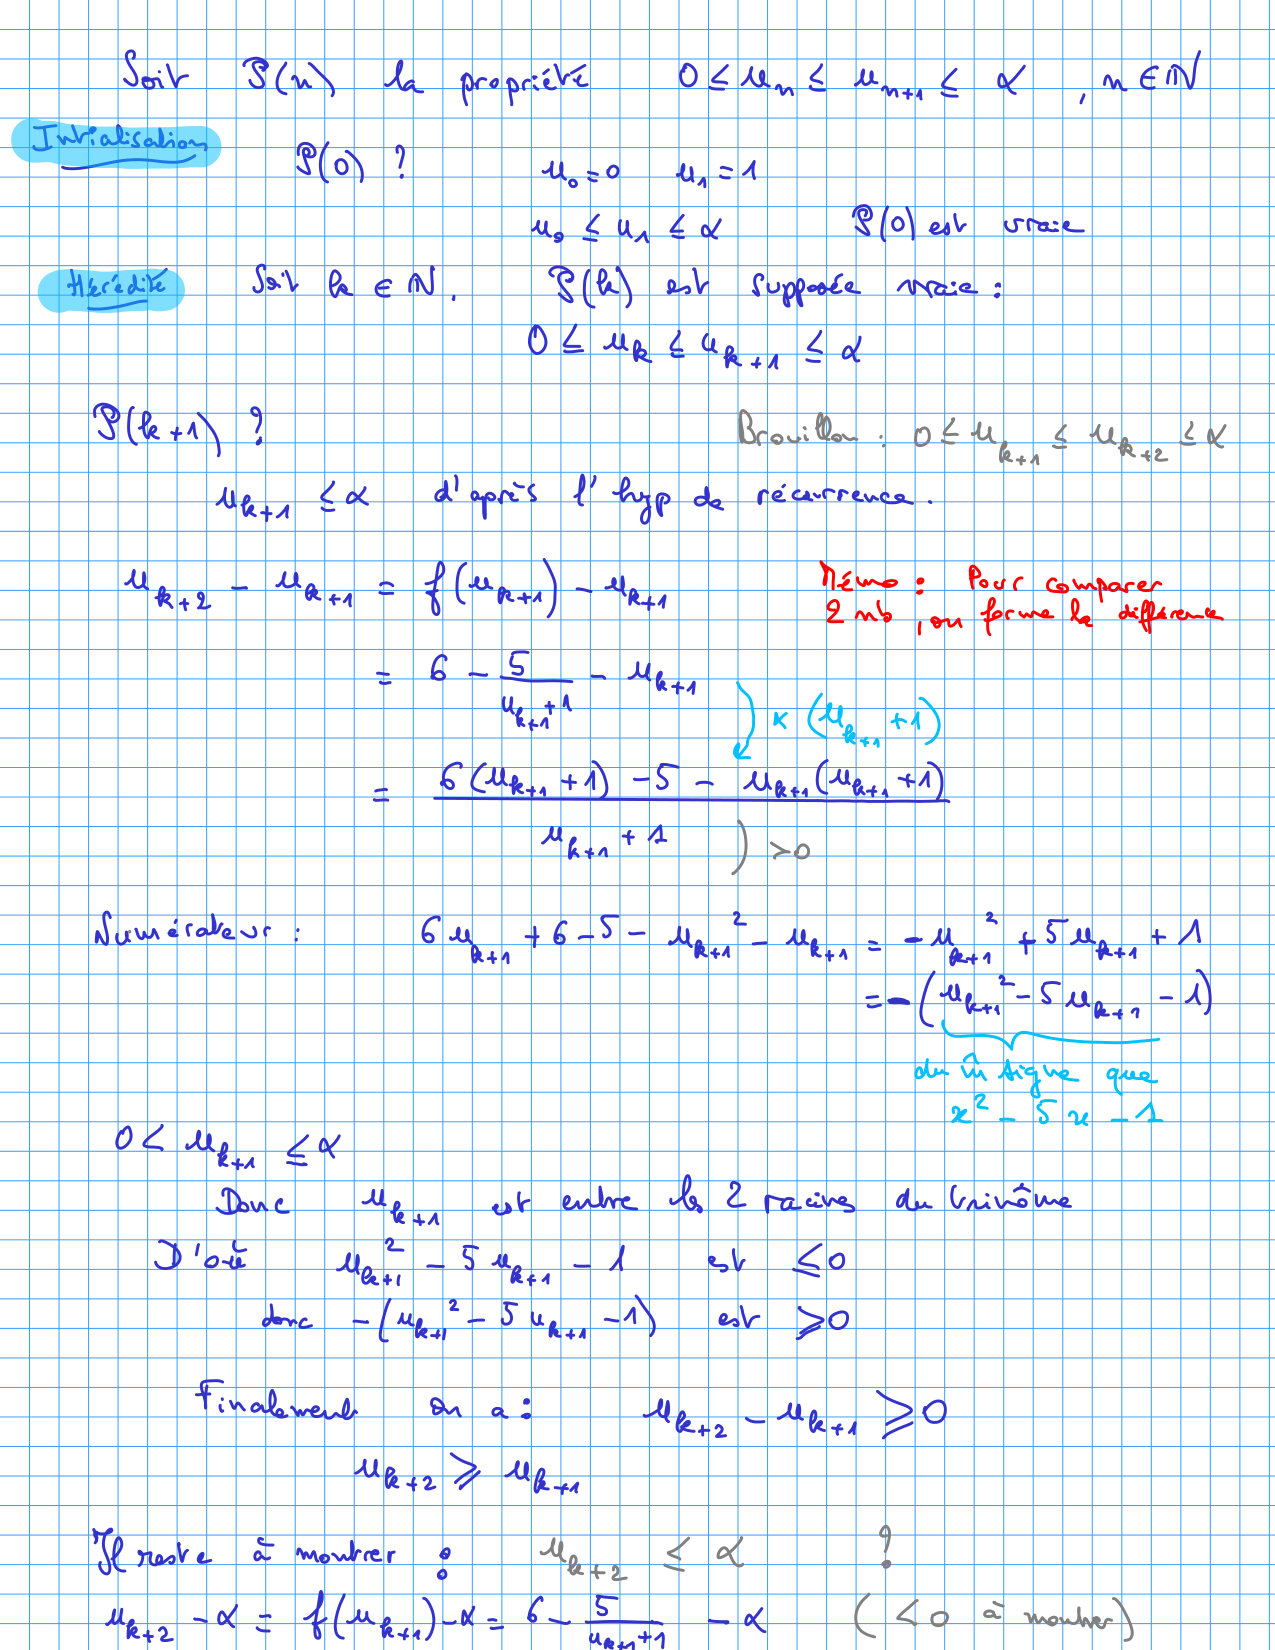 Soit P(n) la propriété 0 ≤ u_n ≤ u_{n+1} ≤ α , n ∈ ℕ
Initialisation
P(0) ? u_0 = 0 u_1 = 1
u_0 ≤ u_1 ≤ α P(0) est vraie
Hérédité Soit k ∈ ℕ. P(k) est supposée vraie :
0 ≤ u_k ≤ u_{k+1} ≤ α
P(k+1) ? Brouillon : 0 ≤ u_{k+1} ≤ u_{k+2} ≤ α
u_{k+1} ≤ α d'après l'hyp de récurrence.
u_{k+2} - u_{k+1} = f(u_{k+1}) - u_{k+1}
Mémo : Pour comparer
2 nb, on forme la différence
= 6 - 5/(u_{k+1} + 1) - u_{k+1}
× (u_{k+1} + 1)
= (6(u_{k+1} + 1) - 5 - u_{k+1}(u_{k+1} + 1))/(u_{k+1} + 1) ) > 0
Numérateur : 6u_{k+1} + 6 - 5 - u_{k+1}² - u_{k+1} = -u_{k+1}² + 5u_{k+1} + 1
= -(u_{k+1}² - 5u_{k+1} - 1)
du m̂ signe que
x² - 5x - 1
0 < u_{k+1} ≤ α
Donc u_{k+1} est entre les 2 racines du trinôme
D'où u_{k+1}² - 5u_{k+1} - 1 est ≤ 0
donc -(u_{k+1}² - 5u_{k+1} - 1) est ≥ 0
Finalement on a : u_{k+2} - u_{k+1} ≥ 0
u_{k+2} ≥ u_{k+1}
Il reste à montrer : u_{k+2} ≤ α ?
u_{k+2} - α = f(u_{k+1}) - α = 6 - 5/(u_{k+1} + 1) - α ( < 0 à montrer)